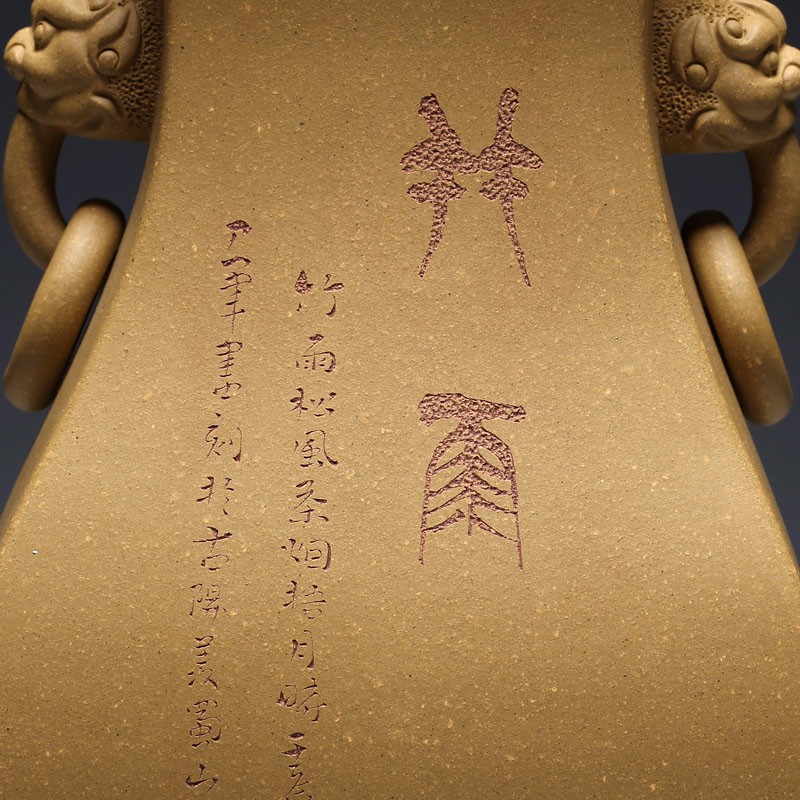 竹雨
竹雨松風茶烟梧月時
畫刻於古陽羨蜀山